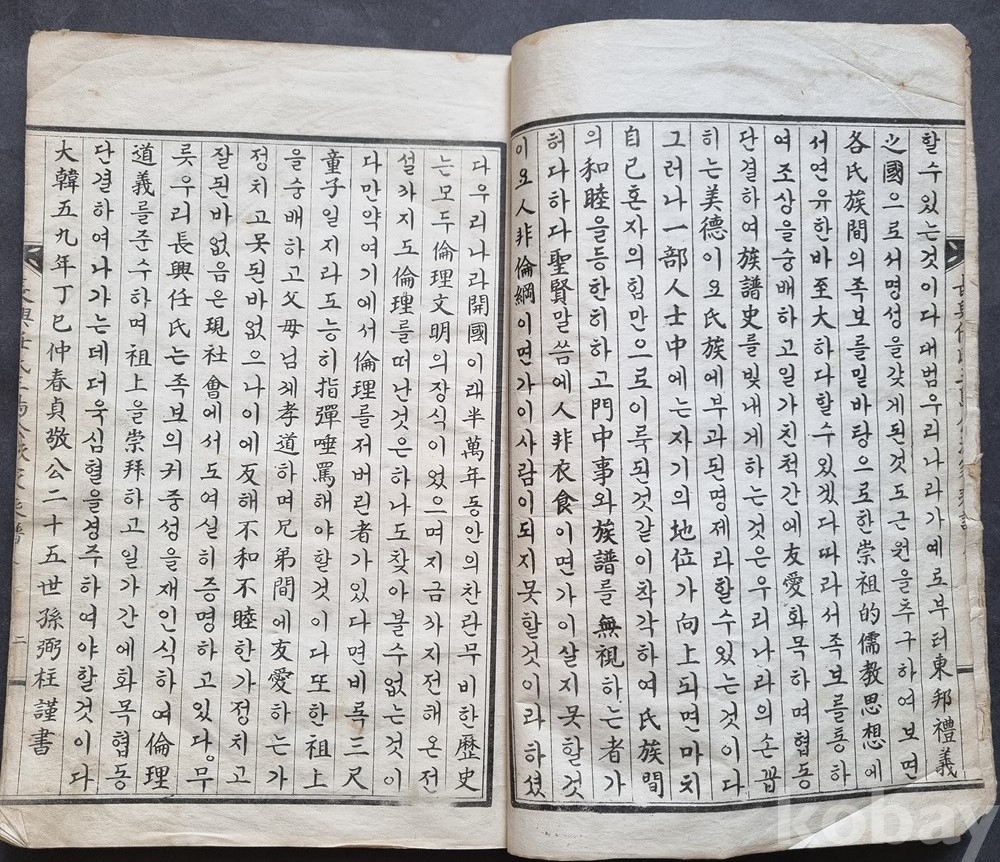 할수있는것이다대범우리나라가예로부터東邦禮義
之國으로서명성을갖게된것도근원을추구하여보면
各氏族間의족보를밑바탕으로한崇祖的儒教思想에
서연유한바至大하다할수있겠다따라서족보를통하
여조상을숭배하고일가친척간에友愛화목하며협동
단결하여族譜史를빛내게하는것은우리나라의손꼽
히는美德이요氏族에부과된명제라할수있는것이다
그러나一部人士中에는자기의地位가向上되면마치
自己혼자의힘만으로이룩된것같이착각하여氏族間
의和睦을등한히하고門中事와族譜를無視하는者가
허다하다聖賢말씀에人非衣食이면가이살지못할것
이요人非倫綱이면가이사람이되지못할것이라하셨
다우리나라開國이래半萬年동안의찬란무비한歷史
는모두倫理文明의장식이었으며지금까지전해온전
설까지도倫理를떠난것은하나도찾아볼수없는것이
다만약여기에서倫理를저버린者가있다면비록三尺
童子일지라도능히指彈唾罵해야할것이다또한祖上
을숭배하고父母님께孝道하며兄弟間에友愛하는가
정치고못된바없으나이에反해不和不睦한가정치고
잘된바없음은現社會에서도여실히증명하고있다무
릇우리長興任氏는족보의귀중성을재인식하여倫理
道義를준수하며祖上을崇拜하고일가간에화목협동
단결하여나가는데더욱심혈을경주하여야할것이다
大韓五九年丁巳仲春貞敬公二十五世孫弼柱謹書
二
kobay